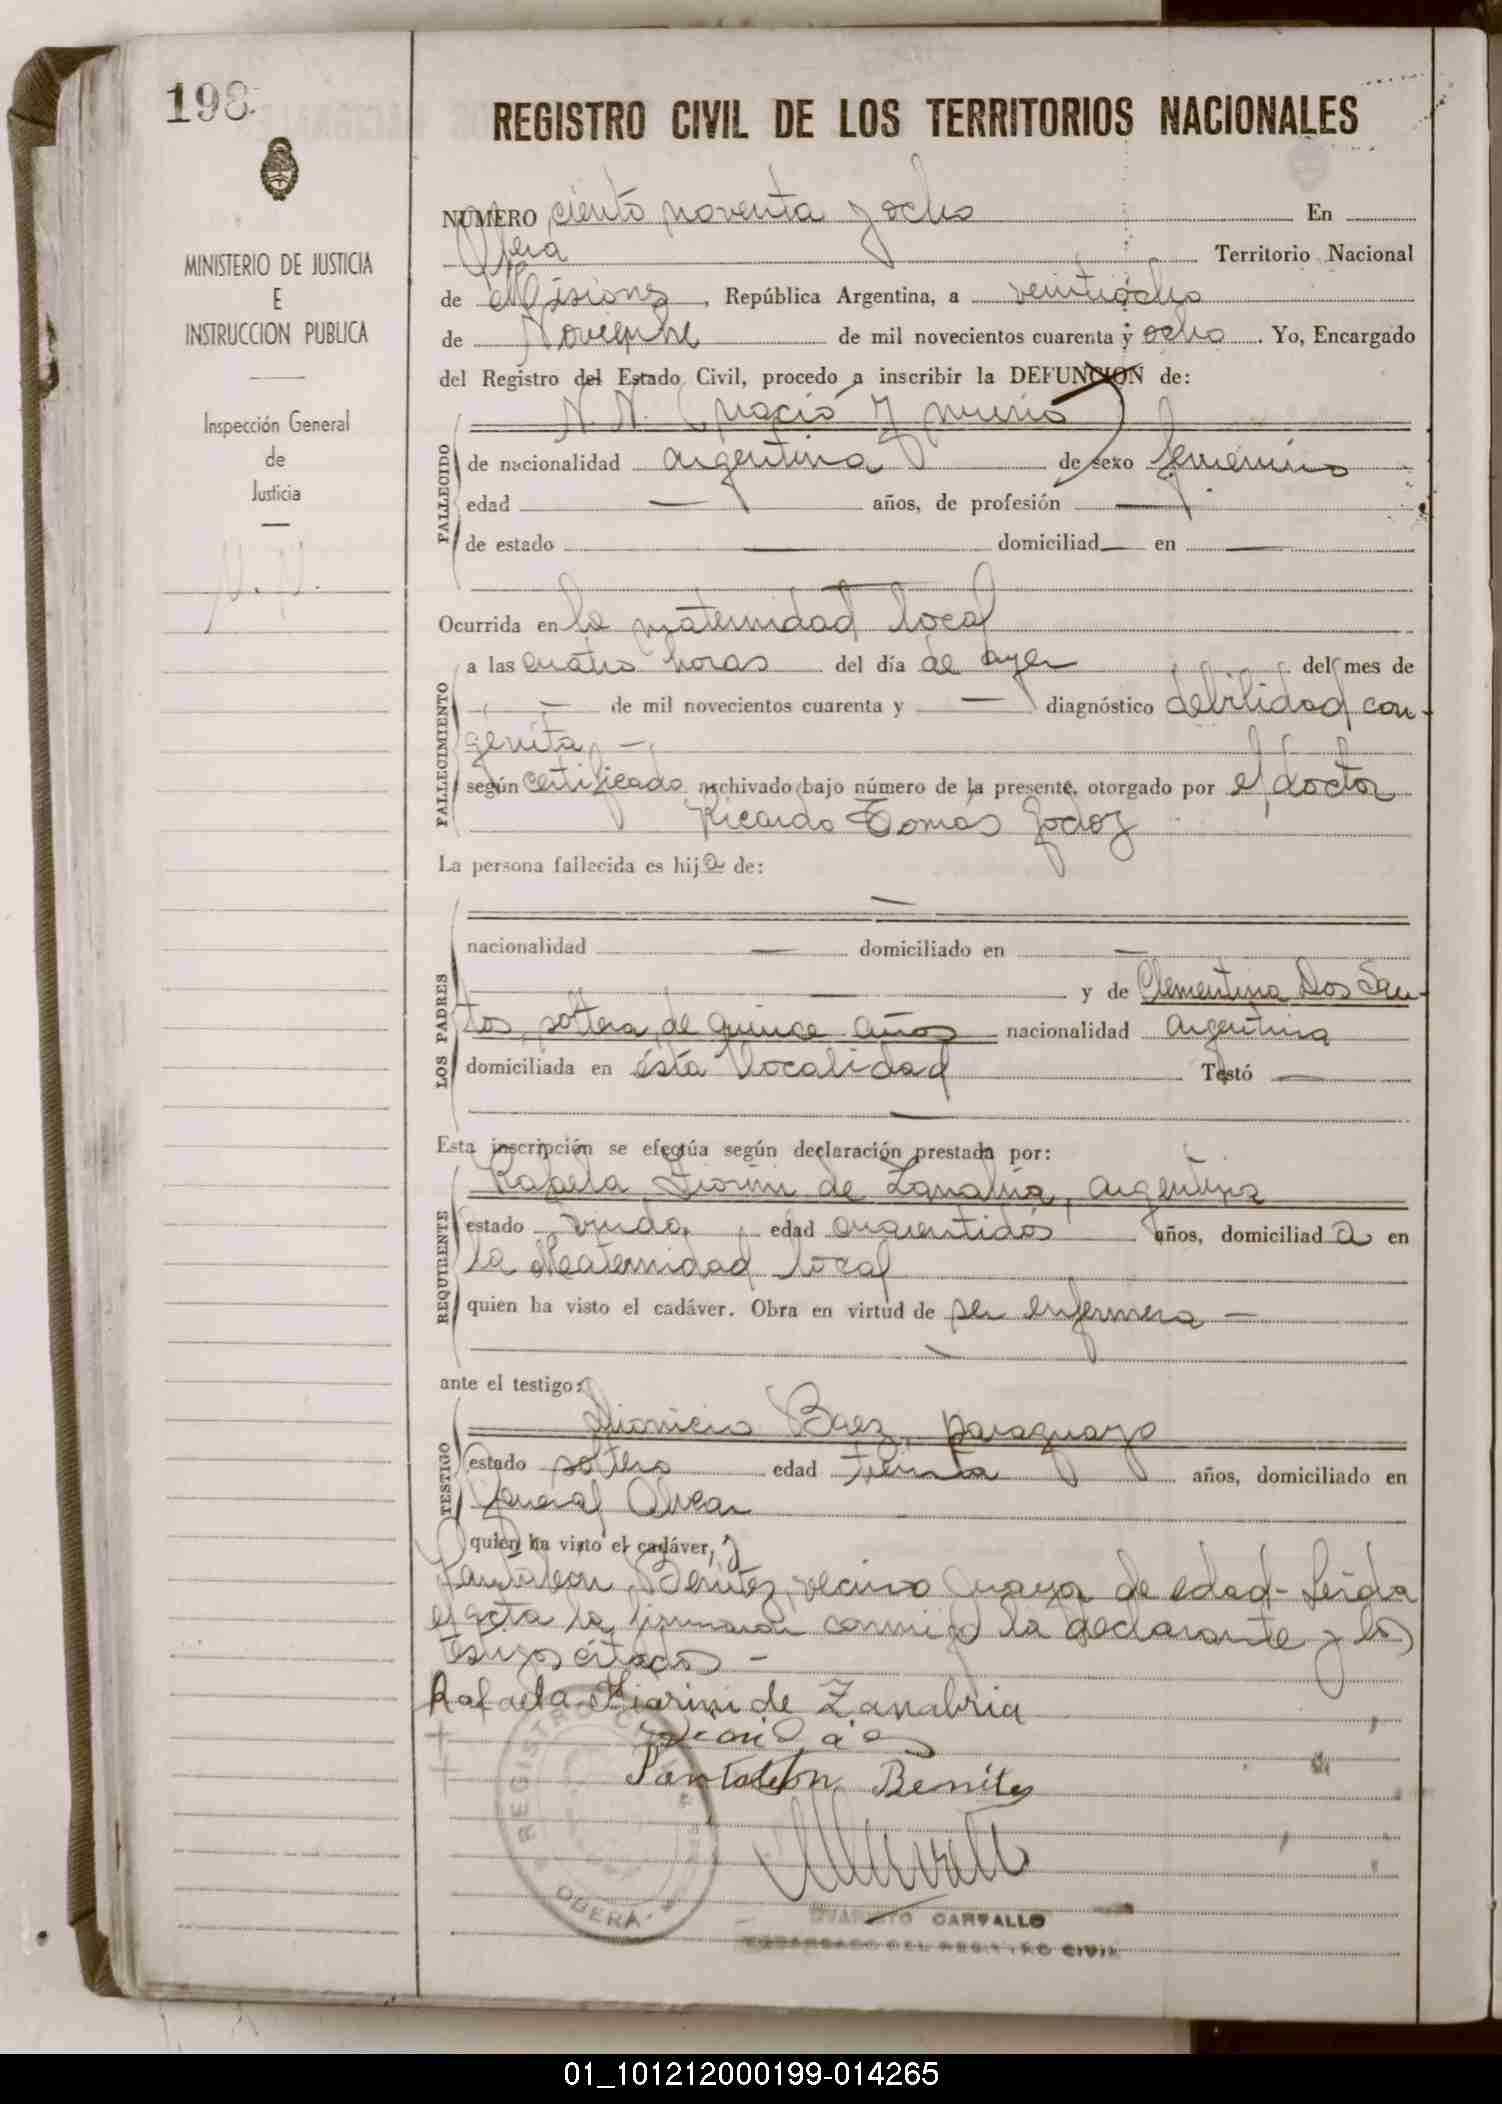 198
REGISTRO CIVIL DE LOS TERRITORIOS NACIONALES
MINISTERIO DE JUSTICIA
E
INSTRUCCION PUBLICA
Inspección General
de
Justicia
N.N.
NUMERO ciento noventa y ocho En
Obera Territorio Nacional
de Misiones, República Argentina, a veintiocho
de Noviembre de mil novecientos cuarenta y ocho. Yo, Encargado
del Registro del Estado Civil, procedo a inscribir la DEFUNCION de:
FALLECIDO
N.N. (nació y murió)
de nacionalidad argentina de sexo femenino
edad — años, de profesión —
de estado — domiciliad— en —
Ocurrida en la maternidad local
FALLECIMIENTO
a las cuatro horas del día de ayer del mes de
— de mil novecientos cuarenta y — diagnóstico debilidad con-
génita, —
según certificado archivado bajo número de la presente, otorgado por el doctor
Ricardo Tomas Godoy
La persona fallecida es hija de:
LOS PADRES
—
nacionalidad — domiciliado en —
— y de Clementina Dos San-
tos, soltera, de quince años nacionalidad argentina
domiciliada en ésta localidad Testó —
—
Esta inscripción se efectúa según declaración prestada por:
REQUIRENTE
Rafaela Fiorini de Zanabria, argentina
estado viuda, edad cuarentidos años, domiciliada en
la Maternidad local
quien ha visto el cadáver. Obra en virtud de ser enfermera —
—
ante el testigo:
TESTIGO
Dionicio Baez, paraguayo
estado soltero edad treinta años, domiciliado en
General Alvear
quien ha visto el cadáver, y
Pantaleon Benitez, vecino mayor de edad- Leida
el acta la firmaron conmigo la declarante y los
testigos citados —
Rafaela Fiarini de Zanabria
Pantaleon Benites
REGISTRO CIVIL
OBERA
CARVALLO
ENCARGADO DEL REGISTRO CIVIL
01_101212000199-014265